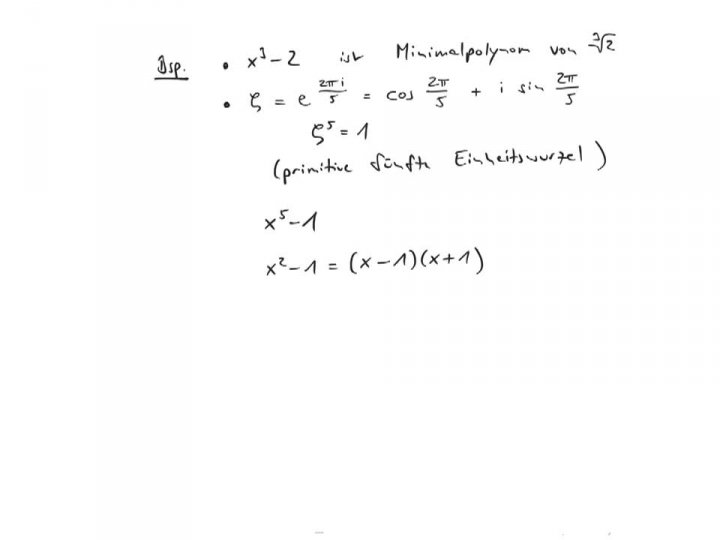 Bsp. • x³-2 ist Minimalpolynom von ∛2
• ζ = e^(2πi/5) = cos 2π/5 + i sin 2π/5
ζ⁵ = 1
(primitive fünfte Einheitswurzel)
x⁵-1
x²-1 = (x-1)(x+1)